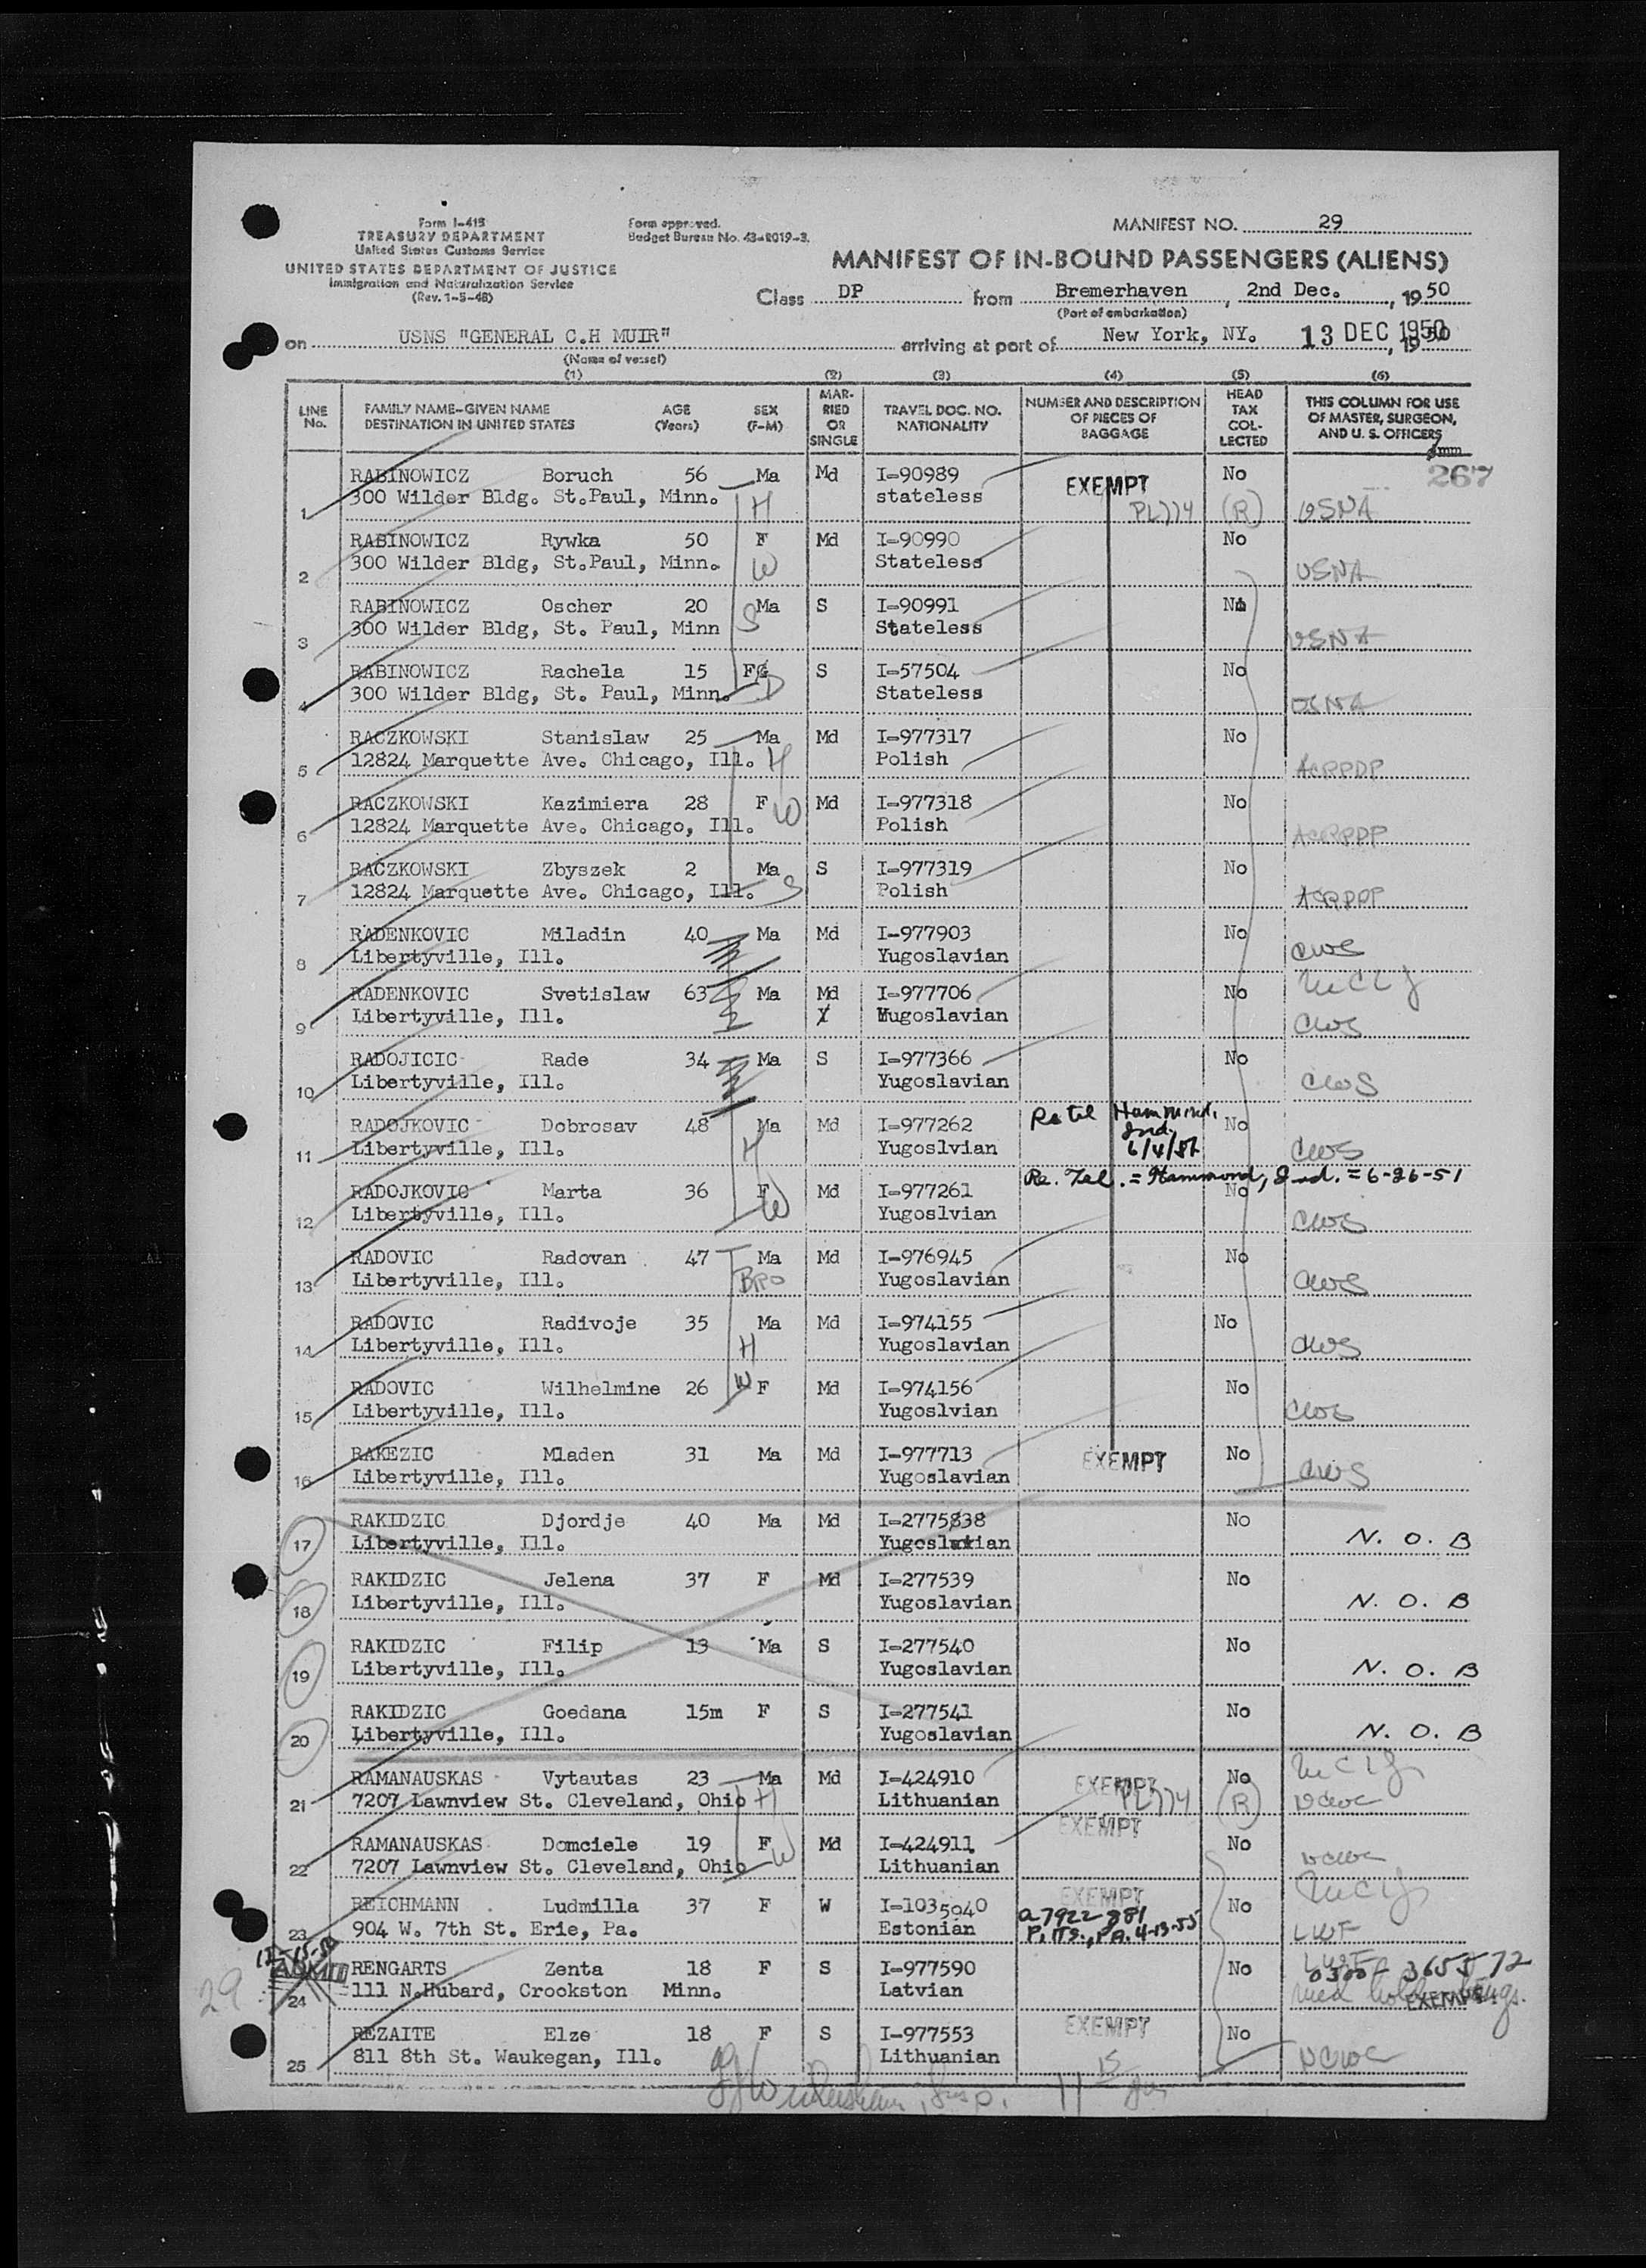 Form I-415
TREASURY DEPARTMENT
United States Customs Service
UNITED STATES DEPARTMENT OF JUSTICE
Immigration and Naturalization Service
(Rev. 1-5-48)
Form approved.
Budget Bureau No. 43-R019-3.
MANIFEST NO. 29
MANIFEST OF IN-BOUND PASSENGERS (ALIENS)
Class DP from Bremerhaven, 2nd Dec., 1950
(Port of embarkation)
on USNS "GENERAL C.H MUIR" arriving at port of New York, NY. 13 DEC 1950, 1950
(Name of vessel)
(1) (2) (3) (4) (5) (6)
LINE No. FAMILY NAME-GIVEN NAME DESTINATION IN UNITED STATES AGE (Years) SEX (F-M) MARRIED OR SINGLE TRAVEL DOC. NO. NATIONALITY NUMBER AND DESCRIPTION OF PIECES OF BAGGAGE HEAD TAX COLLECTED THIS COLUMN FOR USE OF MASTER, SURGEON, AND U. S. OFFICERS
267
RABINOWICZ Boruch 56 Ma Md I-90989 EXEMPT No
1 300 Wilder Bldg. St.Paul, Minn. H stateless PL774 (R) USNA
RABINOWICZ Rywka 50 F Md I-90990 No
2 300 Wilder Bldg, St.Paul, Minn. W Stateless USNA
RABINOWICZ Oscher 20 Ma S I-90991 No
3 300 Wilder Bldg, St. Paul, Minn S Stateless USNA
RABINOWICZ Rachela 15 F S I-57504 No
4 300 Wilder Bldg, St. Paul, Minn. D Stateless USNA
RACZKOWSKI Stanislaw 25 Ma Md I-977317 No
5 12824 Marquette Ave. Chicago, Ill. H Polish ACRPDP
RACZKOWSKI Kazimiera 28 F W Md I-977318 No
6 12824 Marquette Ave. Chicago, Ill. Polish ACRPDP
RACZKOWSKI Zbyszek 2 Ma S I-977319 No
7 12824 Marquette Ave. Chicago, Ill. S Polish ACRPDP
RADENKOVIC Miladin 40 Ma Md I-977903 No
8 Libertyville, Ill. Yugoslavian CWS
RADENKOVIC Svetislaw 63 Ma Md I-977706 No
9 Libertyville, Ill. Yugoslavian CWS
RADOJICIC Rade 34 Ma S I-977366 No
10 Libertyville, Ill. Yugoslavian CWS
RADOJKOVIC Dobrosav 48 Ma Md I-977262 Re tel Hammond, Ind. No
11 Libertyville, Ill. H Yugoslvian CWS
Re. Tel. = Hammond, Ind. = 6-26-51
RADOJKOVIC Marta 36 F Md I-977261 No
12 Libertyville, Ill. W Yugoslvian CWS
RADOVIC Radovan 47 Ma Md I-976945 No
13 Libertyville, Ill. BRO Yugoslavian CWS
RADOVIC Radivoje 35 Ma Md I-974155 No
14 Libertyville, Ill. H Yugoslavian CWS
RADOVIC Wilhelmine 26 W F Md I-974156 No
15 Libertyville, Ill. Yugoslvian CWS
RAKEZIC Mladen 31 Ma Md I-977713 EXEMPT No
16 Libertyville, Ill. Yugoslavian CWS
RAKIDZIC Djordje 40 Ma Md I-2775838 No
17 Libertyville, Ill. Yugoslavian N. O. B
RAKIDZIC Jelena 37 F Md I-277539 No
18 Libertyville, Ill. Yugoslavian N. O. B
RAKIDZIC Filip 13 Ma S I-277540 No
19 Libertyville, Ill. Yugoslavian N. O. B
RAKIDZIC Goedana 15m F S I-277541 No
20 Libertyville, Ill. Yugoslavian N. O. B
RAMANAUSKAS Vytautas 23 Ma Md I-424910 EXEMPT No
21 7207 Lawnview St. Cleveland, Ohio H Lithuanian PL774 (R) NCWC
EXEMPT
RAMANAUSKAS Domciele 19 F Md I-424911 No
22 7207 Lawnview St. Cleveland, Ohio W Lithuanian NCWC
REICHMANN Ludmilla 37 F W I-1035040 EXEMPT No
a7922881
23 904 W. 7th St. Erie, Pa. Estonian Pitts., PA. 4-13-55 LWF
29 ADMIT RENGARTS Zenta 18 F S I-977590 No LWF
0300-365572
24 111 N.Hubard, Crookston Minn. Latvian EXEMPT
REZAITE Elze 18 F S I-977553 EXEMPT No
25 811 8th St. Waukegan, Ill. Lithuanian NCWC